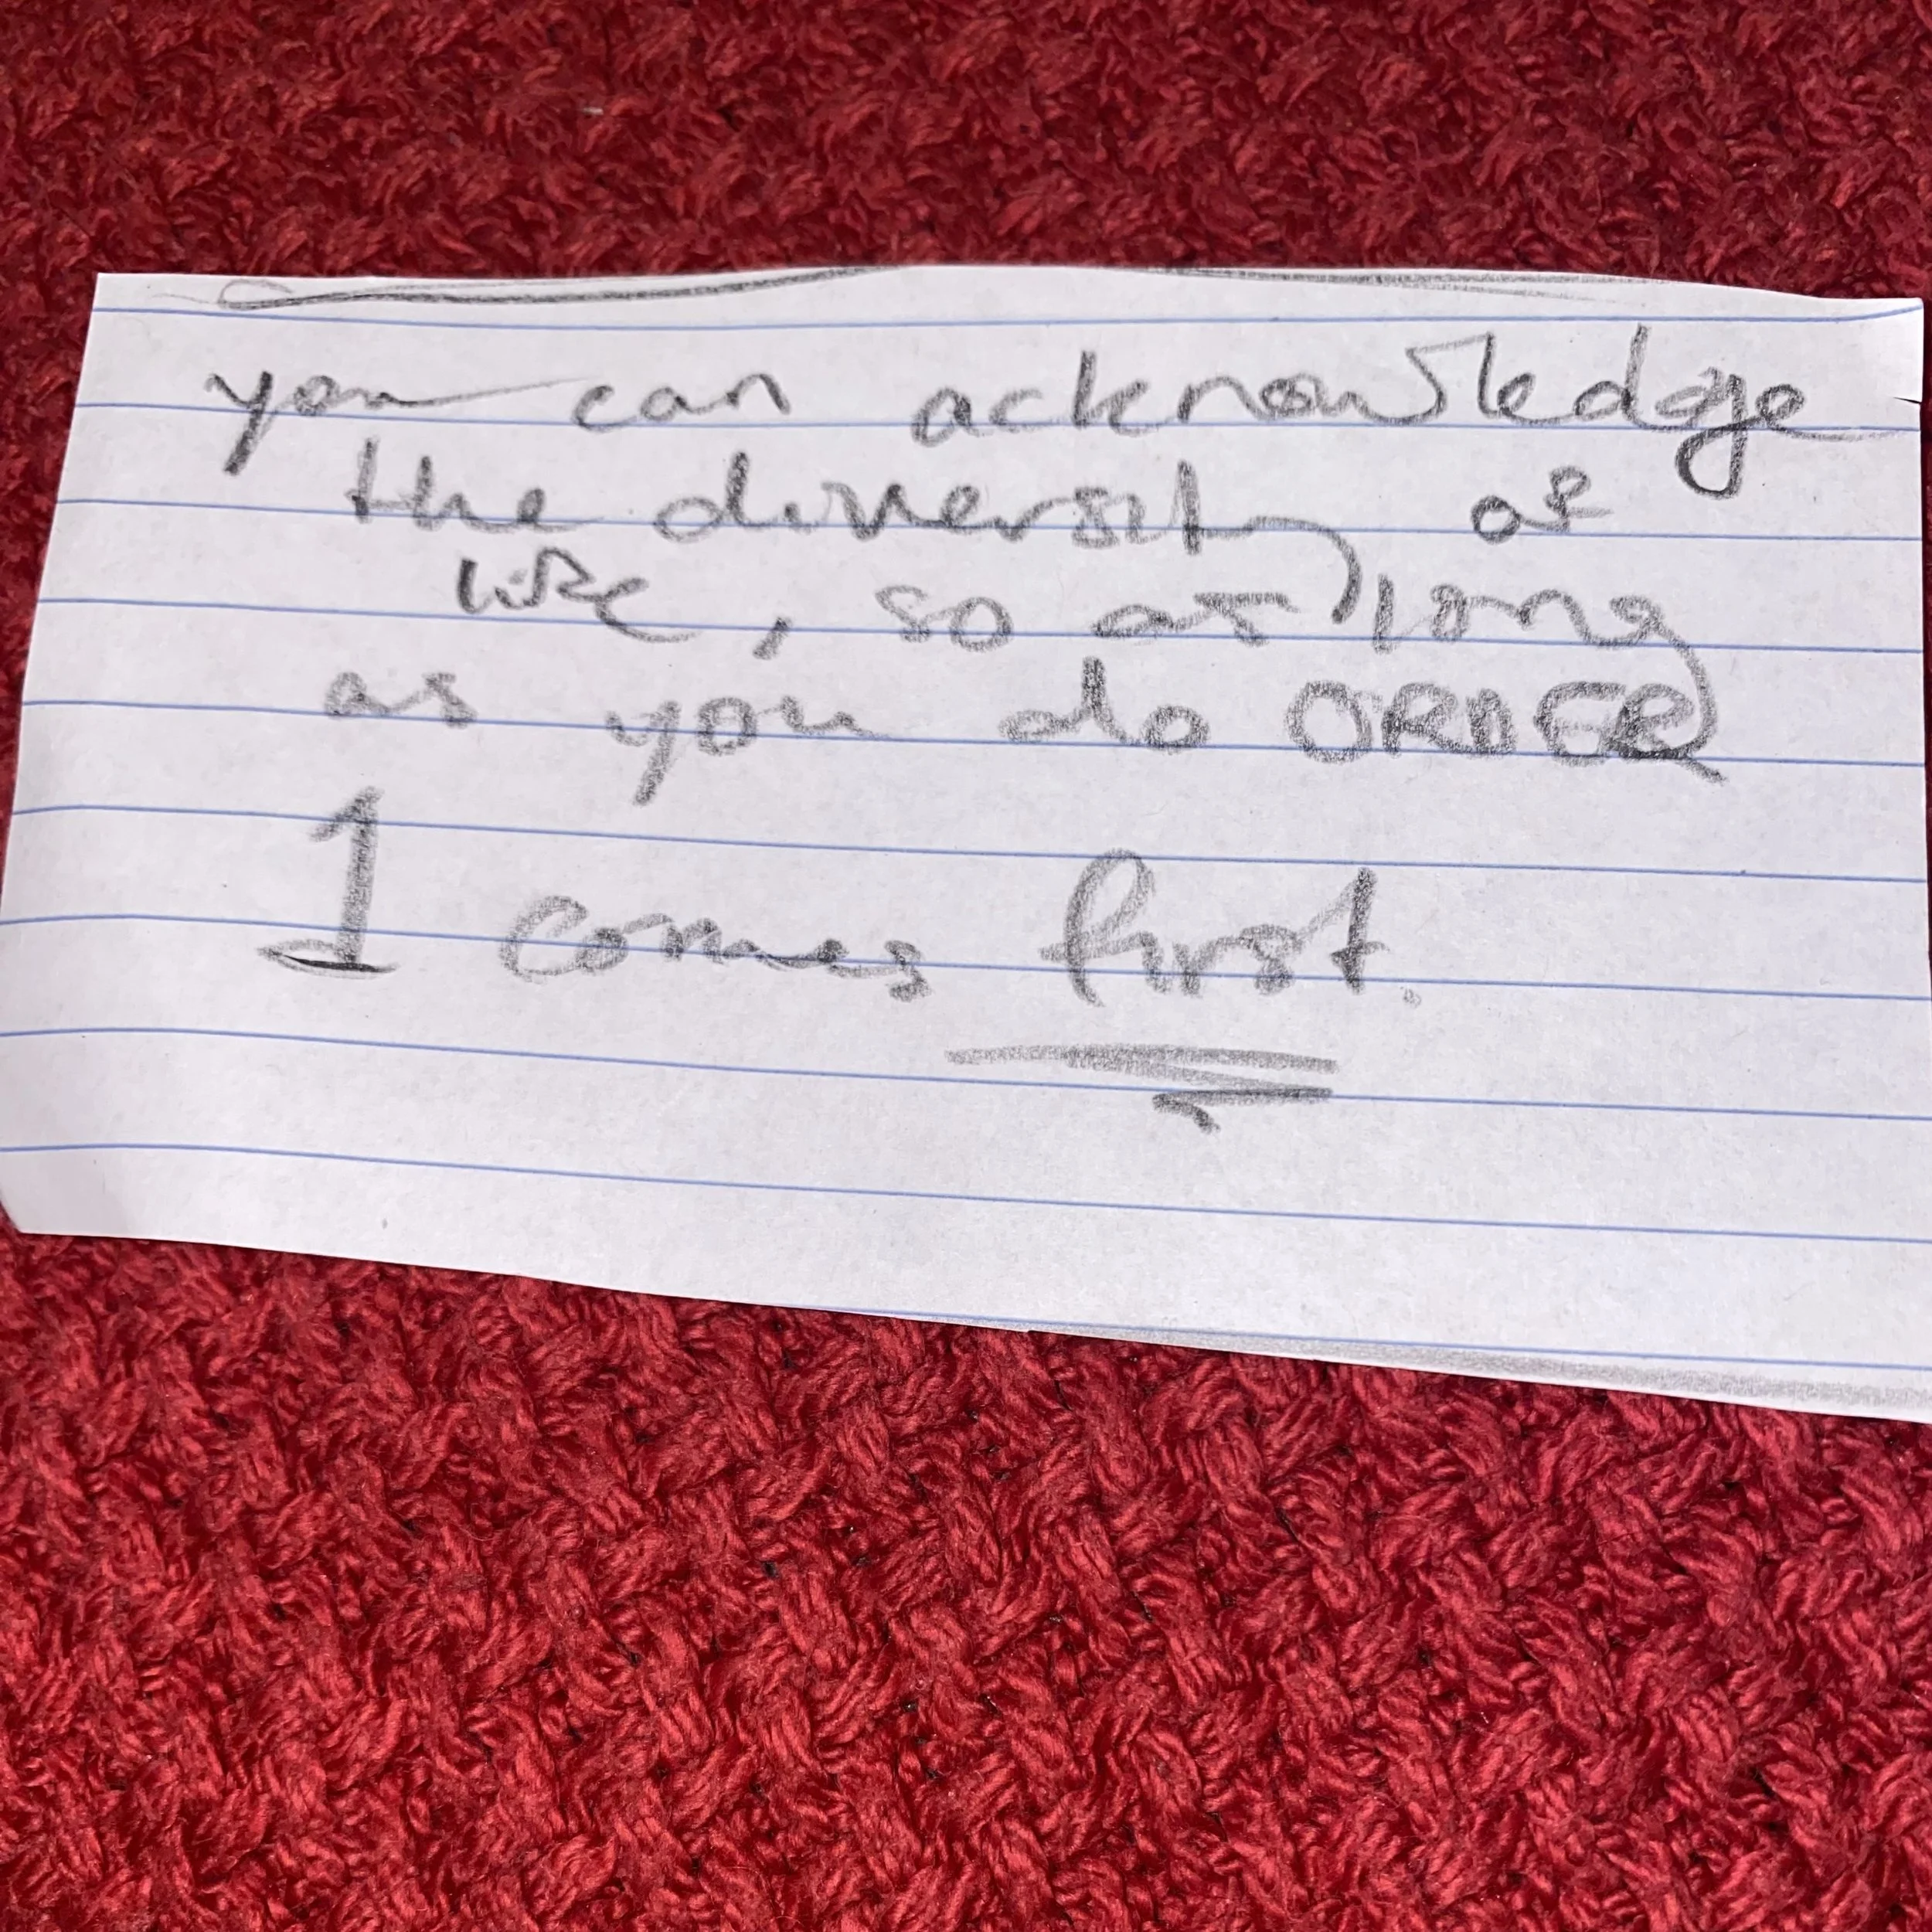 you can acknowledge
the diversity of
life, so as long
as you do ORDER
1 comes first.